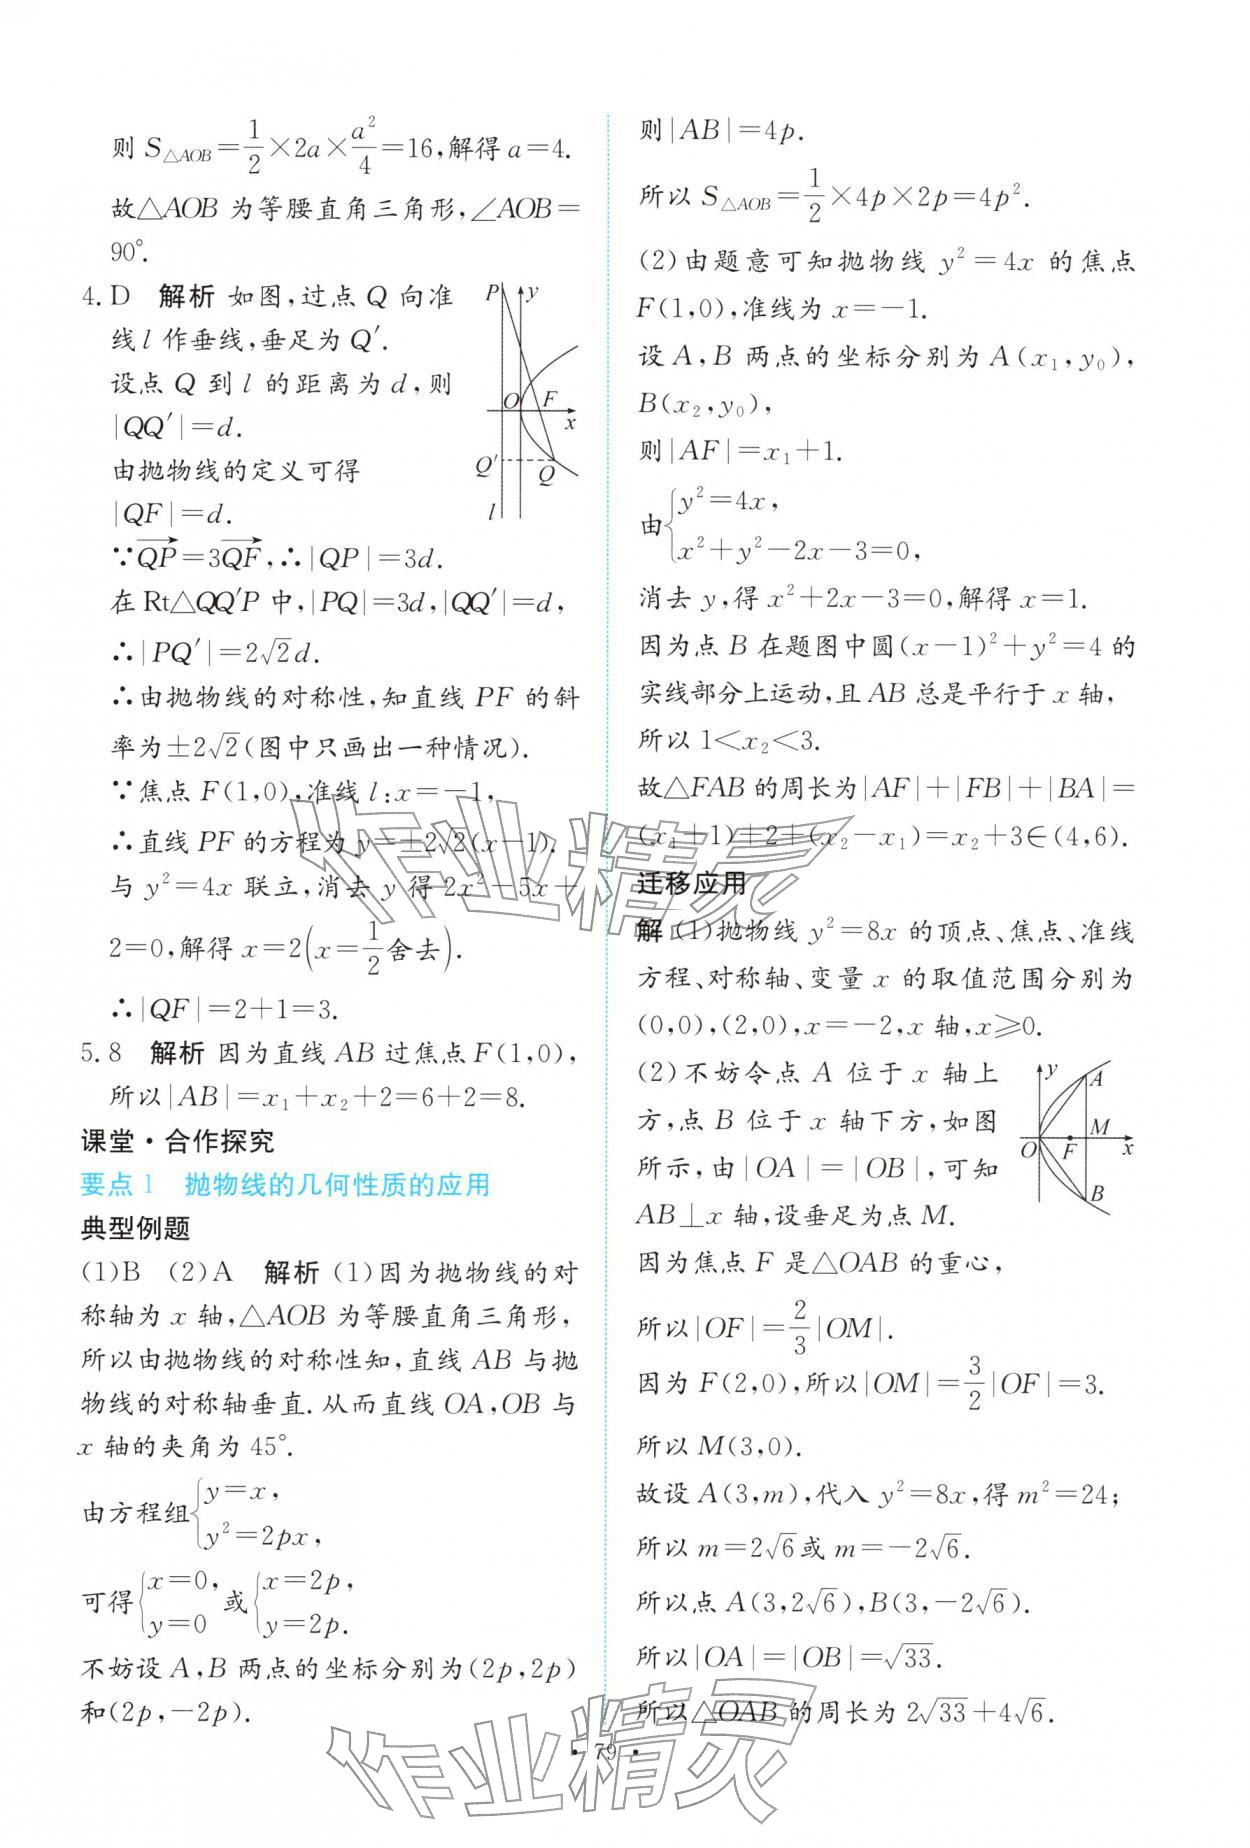 则 S△AOB=1/2×2a×a²/4=16,解得 a=4.
故△AOB 为等腰直角三角形,∠AOB=
90°.
4. D 解析 如图,过点 Q 向准
线 l 作垂线,垂足为 Q′.
设点 Q 到 l 的距离为 d,则
|QQ′|=d.
由抛物线的定义可得
|QF|=d.
P
y
O
F
x
Q′
Q
l
∵QP→=3QF→,∴|QP|=3d.
在 Rt△QQ′P 中,|PQ|=3d,|QQ′|=d,
∴|PQ′|=2√2d.
∴由抛物线的对称性,知直线 PF 的斜
率为±2√2(图中只画出一种情况).
∵焦点 F(1,0),准线 l:x=-1,
∴直线 PF 的方程为 y=±2√2(x-1).
与 y²=4x 联立,消去 y 得 2x²-5x+
2=0,解得 x=2(x=1/2舍去).
∴|QF|=2+1=3.
5. 8 解析 因为直线 AB 过焦点 F(1,0),
所以|AB|=x₁+x₂+2=6+2=8.
课堂·合作探究
要点 1 抛物线的几何性质的应用
典型例题
(1)B (2)A 解析 (1)因为抛物线的对
称轴为 x 轴,△AOB 为等腰直角三角形,
所以由抛物线的对称性知,直线 AB 与抛
物线的对称轴垂直.从而直线 OA,OB 与
x 轴的夹角为 45°.
由方程组{y=x,
y²=2px,
可得{x=0, y=0 或{x=2p, y=2p.
不妨设 A,B 两点的坐标分别为(2p,2p)
和(2p,-2p).
则|AB|=4p.
所以 S△AOB=1/2×4p×2p=4p².
(2)由题意可知抛物线 y²=4x 的焦点
F(1,0),准线为 x=-1.
设 A,B 两点的坐标分别为 A(x₁,y₀),
B(x₂,y₀),
则|AF|=x₁+1.
由{y²=4x,
x²+y²-2x-3=0,
消去 y,得 x²+2x-3=0,解得 x=1.
因为点 B 在题图中圆(x-1)²+y²=4 的
实线部分上运动,且 AB 总是平行于 x 轴,
所以 1<x₂<3.
故△FAB 的周长为|AF|+|FB|+|BA|=
(x₁+1)+2+(x₂-x₁)=x₂+3∈(4,6).
迁移应用
解 (1)抛物线 y²=8x 的顶点、焦点、准线
方程、对称轴、变量 x 的取值范围分别为
(0,0),(2,0),x=-2,x 轴,x≥0.
(2)不妨令点 A 位于 x 轴上
方,点 B 位于 x 轴下方,如图
所示,由|OA|=|OB|,可知
AB⊥x 轴,设垂足为点 M.
y
A
M
O
F
x
B
因为焦点 F 是△OAB 的重心,
所以|OF|=2/3|OM|.
因为 F(2,0),所以|OM|=3/2|OF|=3.
所以 M(3,0).
故设 A(3,m),代入 y²=8x,得 m²=24;
所以 m=2√6或 m=-2√6.
所以点 A(3,2√6),B(3,-2√6).
所以|OA|=|OB|=√33.
所以△OAB 的周长为 2√33+4√6.
作业精灵
作业精灵
· 79 ·